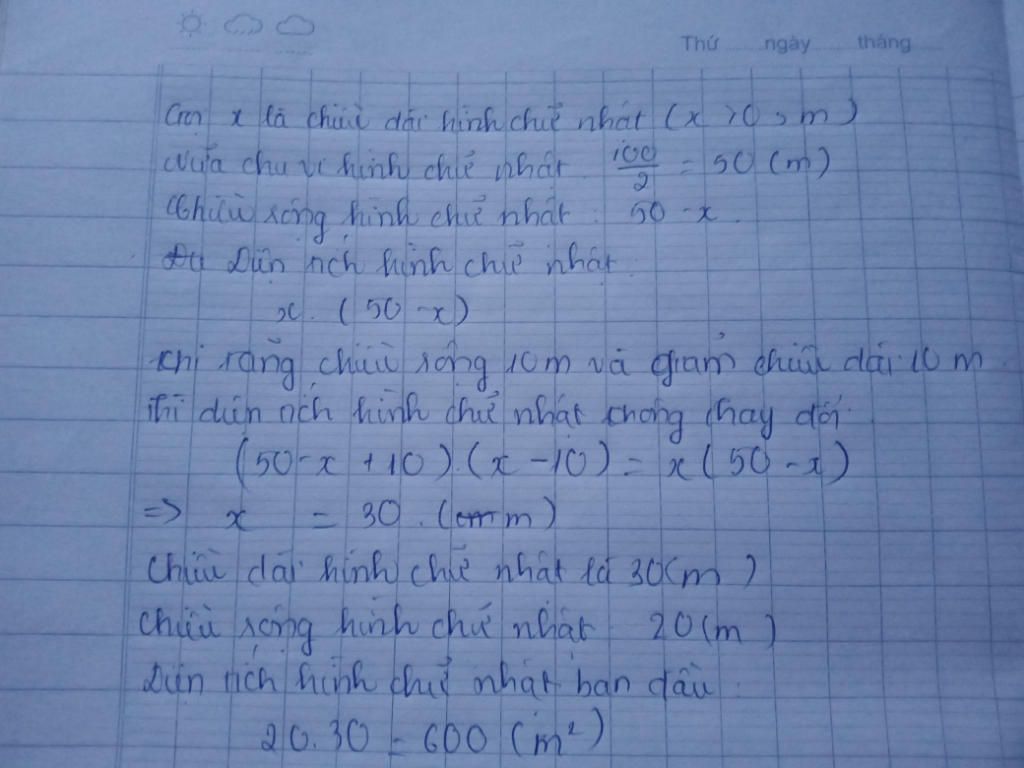 Thứ ngày tháng
Gọi x là chiều dài hình chữ nhật (x > 0, m)
Nửa chu vi hình chữ nhật 100/2 = 50 (m)
Chiều rộng hình chữ nhật : 50 - x.
Diện tích hình chữ nhật
x. (50 - x)
Khi tăng chiều rộng 10m và giảm chiều dài 10 m
thì diện tích hình chữ nhật không thay đổi
(50 - x + 10).(x - 10) = x(50 - x)
=> x = 30. (m)
Chiều dài hình chữ nhật là 30(m)
Chiều rộng hình chữ nhật 20(m)
Diện tích hình chữ nhật ban đầu :
20.30 = 600 (m²)